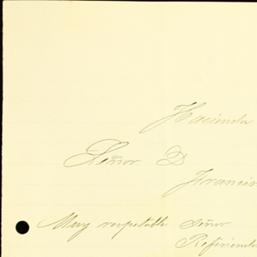 Hacienda
Señor D
Francis
Muy respetable señor
Refiriendo